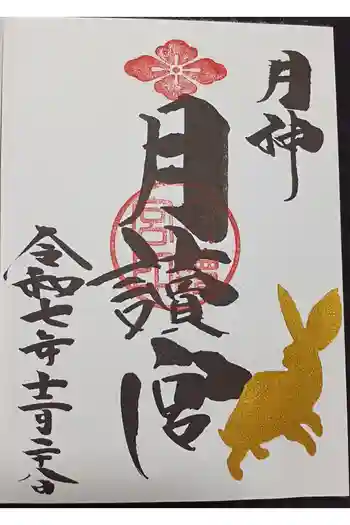 月神
月讀宮
令和七年十二月二十八日